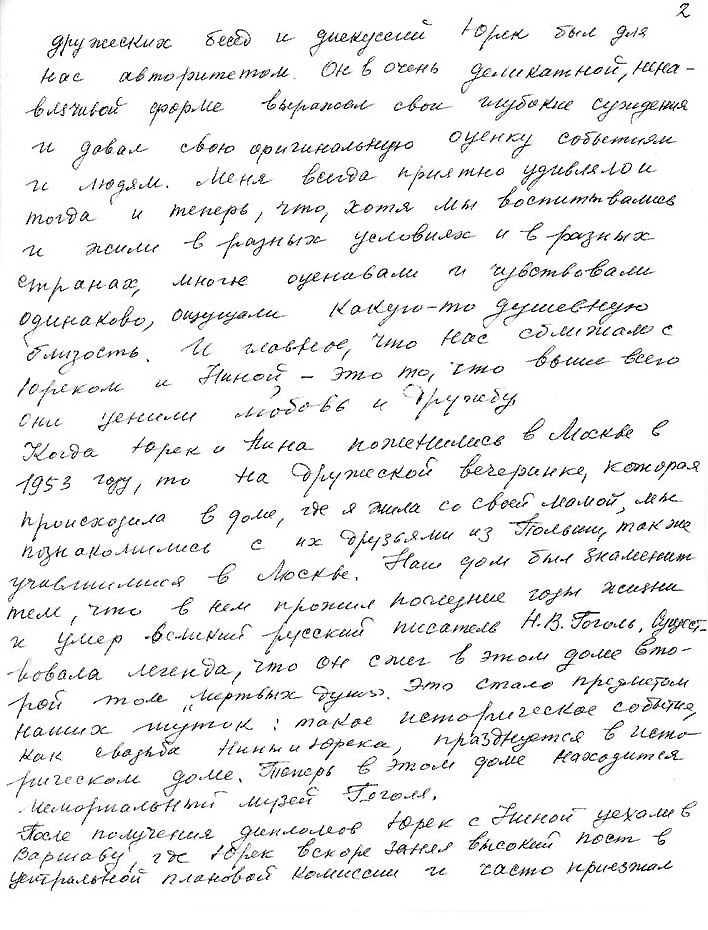 2
дружеских бесед и дискуссий Юрек был для
нас авторитетом. Он в очень деликатной, нена-
вязчивой форме выражал свои глубокие суждения
и давал свою оригинальную оценку событиям
и людям. Меня всегда приятно удивляло и
тогда и теперь, что, хотя мы воспитывались
и жили в разных условиях и в разных
странах, многое оценивали и чувствовали
одинаково, ощущали какую-то душевную
близость. И главное, что нас сближало с
Юреком и Ниной, – это то, что выше всего
они ценили любовь и дружбу.
Когда Юрек и Нина поженились в Москве в
1953 году, то на дружеской вечеринке, которая
происходила в доме, где я жила со своей мамой, мы
познакомились с их друзьями из Польши, также
учившимися в Москве. Наш дом был знаменит
тем, что в нем прожил последние годы жизни
и умер великий русский писатель Н.В. Гоголь. Сущест-
вовала легенда, что он сжег в этом доме вто-
рой том „Мертвых душ". Это стало предметом
наших шуток: такое историческое событие,
как свадьба Нины и Юрека, празднуется в исто-
рическом доме. Теперь в этом доме находится
мемориальный музей Гоголя.
После получения дипломов Юрек с Ниной уехали в
Варшаву, где Юрек вскоре занял высокий пост в
Центральной плановой комиссии и часто приезжал